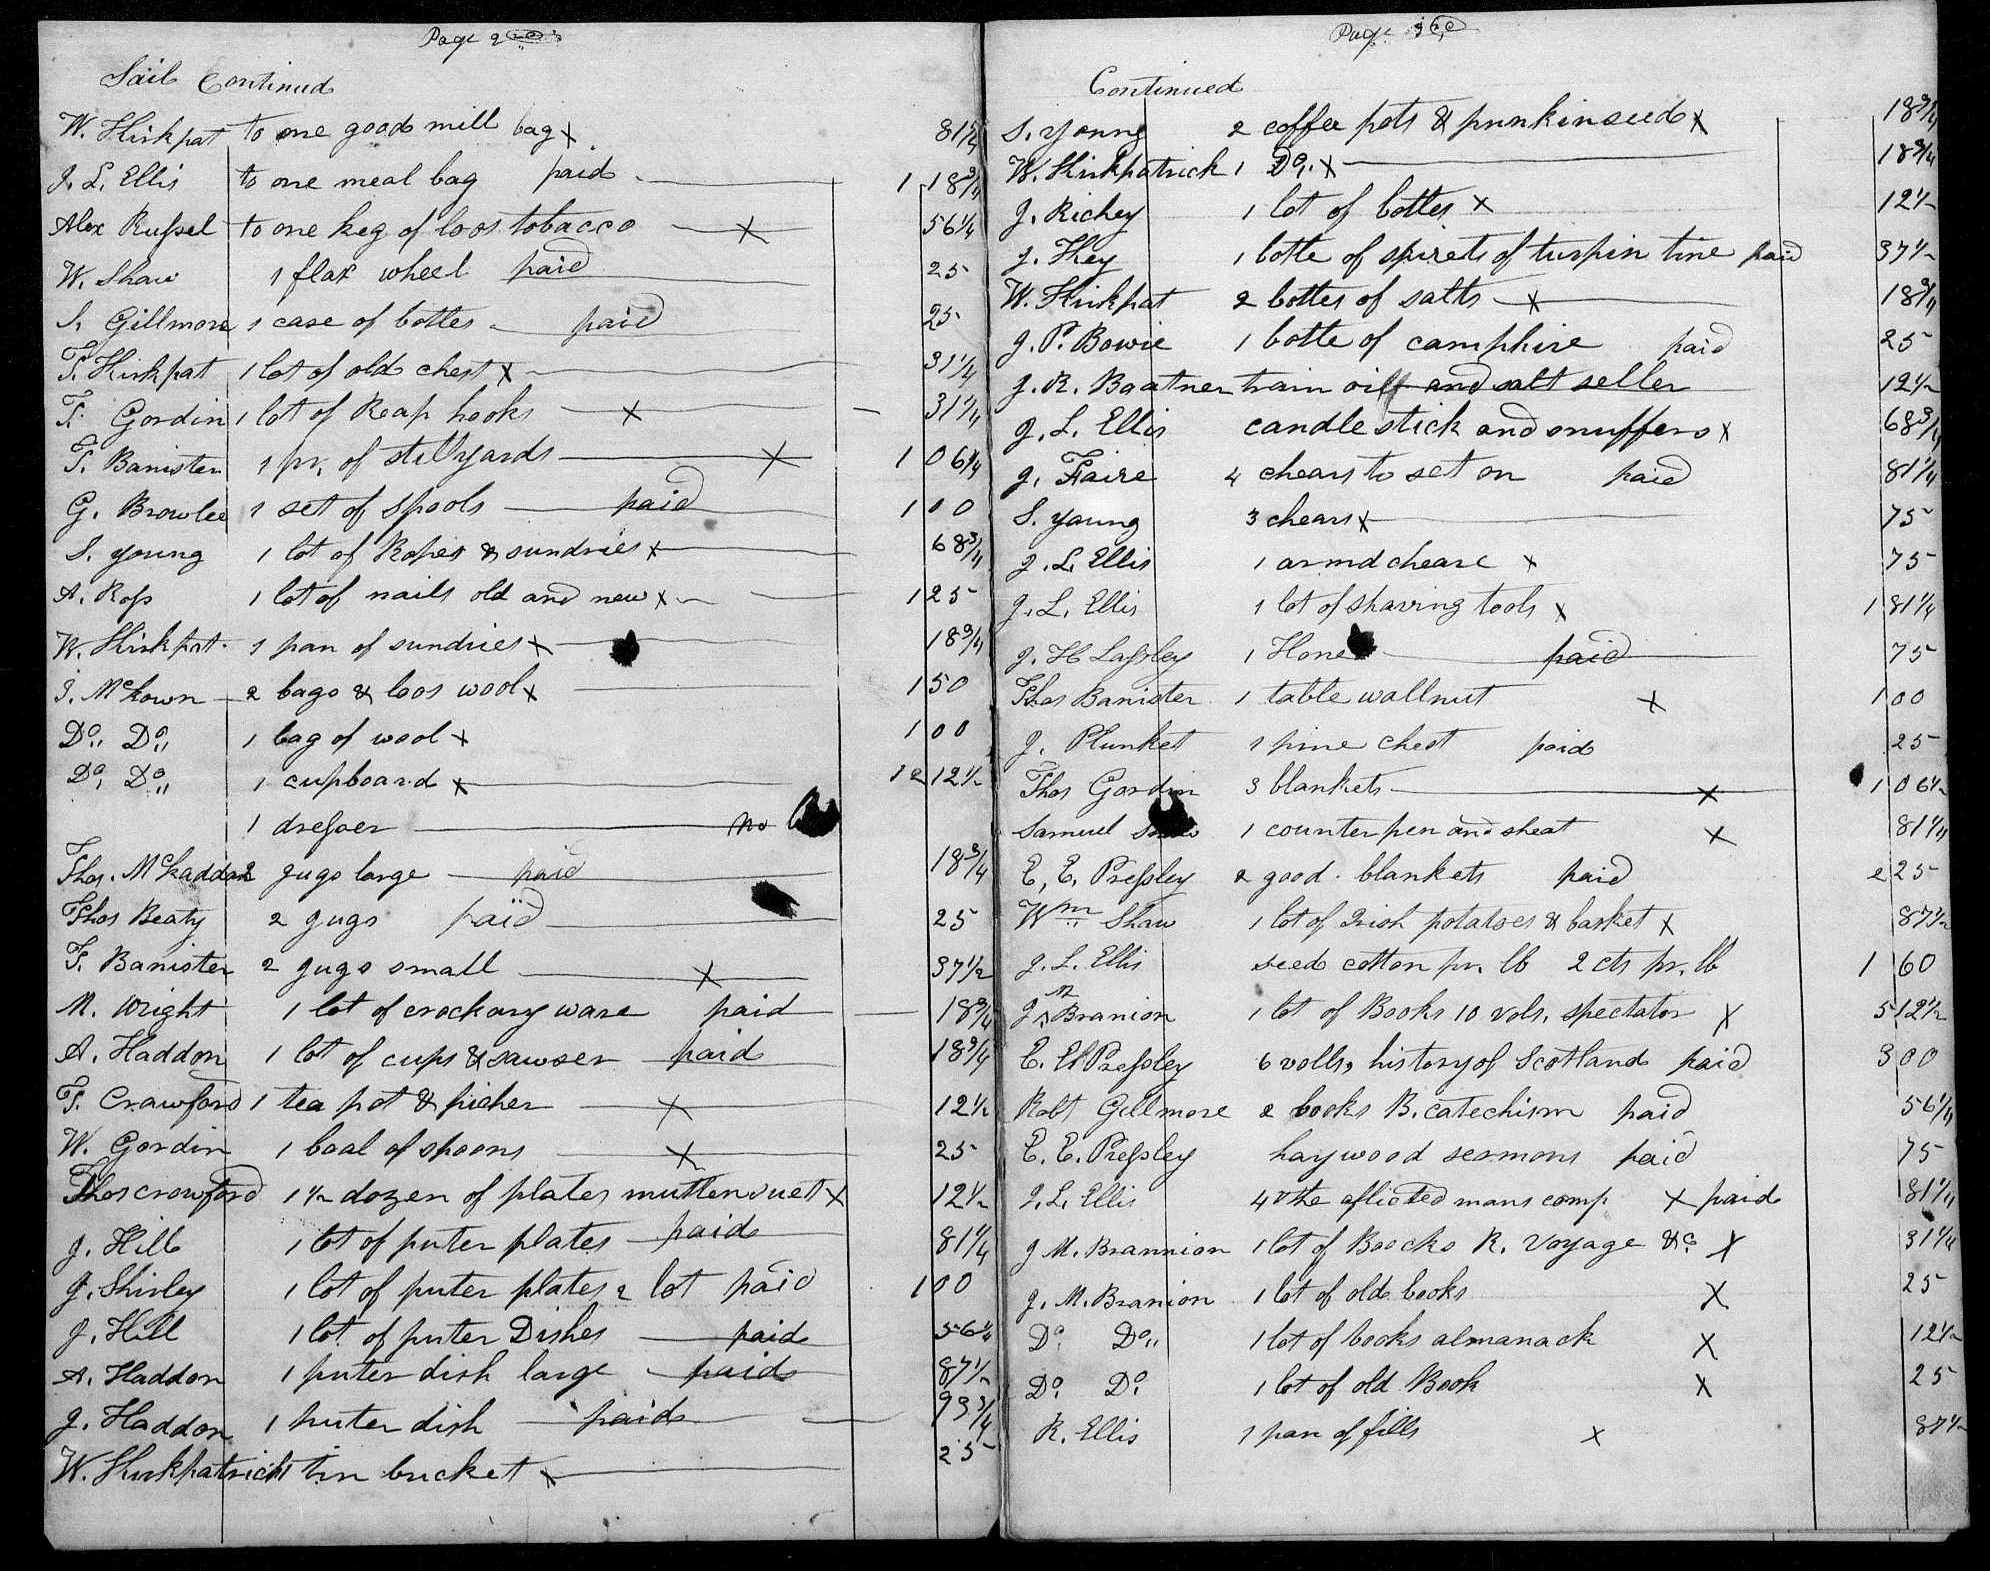 Page 2
Sail Continued
W. Kirkpat to one good mill bag x 81 1/4
J. L. Ellis to one meal bag paid 1 18 3/4
Alex Russel to one keg of loos tobacco x 56 1/4
W. Shaw 1 flax wheel paid 25
S. Gillmore 1 case of bottes paid 25
T. Kirkpat 1 lot of old chest x 31 1/4
T. Gordin 1 lot of Reap hooks x 31 1/4
T. Banister 1 pr. of stillyards x 1 06 1/4
G. Browlee 1 set of spools paid 1 00
S. Young 1 lot of Ropes & sundries x 68 3/4
A. Ross 1 lot of nails old and new x 1 25
W. Kirkpat. 1 pan of sundries x 18 3/4
J. McKown 2 bags & loos wool x 1 50
Do,, Do,, 1 bag of wool x 1 00
Do, Do,, 1 cupboard x 12 12 1/2
1 dresser no
Thos. McKaddan 2 gugs large paid 18 3/4
Thos Beaty 2 gugs paid 25
T. Banister 2 gugs small x 37 1/2
M. Wright 1 lot of crockary ware paid 18 3/4
A. Haddon 1 lot of cups & sawser paid 18 3/4
T. Crawford 1 tea pot & picher x 12 1/2
W. Gordin 1 boal of spoons x 25
Thos crowford 1 1/2 dozen of plates mutten suet x 12 1/2
J. Hill 1 lot of puter plates paid 81 1/4
J. Shirley 1 lot of puter plates 2 lot paid 1 00
J. Hill 1 lot of puter Dishes paid 56 1/4
A. Haddon 1 puter dish large paid 87 1/2
J. Haddon 1 puter dish paid 93 3/4
W. Kirkpatrick 1 tin bucket x 25
Page 3
Continued
S. Young 2 coffee pots & punkinseed x 18 3/4
W. Kirkpatrick 1 Do. x 18 3/4
J. Richey 1 lot of bottes x 12 1/2
J. Key 1 botte of spirets of turpin tine paid 37 1/2
W. Kirkpat 2 bottes of salts x 18 3/4
J. P. Bowie 1 botte of camphire paid 25
J. R. Baatner train oil and salt seller 12 1/2
J. L. Ellis candle stick and snuffers x 68 3/4
J. Faire 4 chears to set on paid 81 1/4
S. Young 3 chears x 75
J. L. Ellis 1 armd cheare x 75
J. L. Ellis 1 lot of sharving tools x 1 81 1/4
J. H Lassley 1 Hone paid 75
Thos Banister 1 table wallnut x 1 00
J. Plunket 1 pine chest paid 25
Thos Gordin 3 blankets x 1 06 1/2
Samuel 1 counter pen and sheat x 81 1/4
E. E. Pressley 2 good blankets paid 2 25
Wm Shaw 1 lot of Irish potatoes & basket x 87 1/2
J. L. Ellis seed cotton pr. lb 2 cts pr. lb 1 60
J M Branion 1 lot of Books 10 vols. spectator x 5 12 1/2
E. E Pressley 6 volls, history of Scotland paid 3 00
Robt Gillmore 2 books B. catechism paid 56 1/4
E. E. Pressley haywood sermons paid 75
J. L. Ellis 4 the aflicted mans comp. x paid 81 1/4
J M. Brannion 1 lot of Boocks R. Voyage &c x 31 1/4
J. M. Branion 1 lot of old books x 25
Do Do,, 1 lot of books almanack x 12 1/2
Do. Do. 1 lot of old Book x 25
R. Ellis 1 pan of fills x 87 1/2